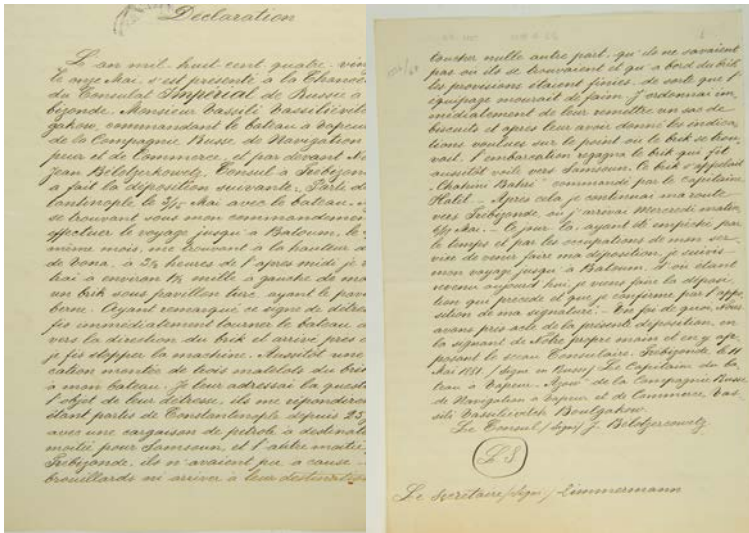 Déclaration
L'an mil huit cent quatre-vin
le onze Mai s'est présenté à la Chancel
du Consulat Impérial de Russie à
bizonde, Monsieur Vassili Vassiliévitch
gakow, commandant le bateau à vapeur
de la Compagnie Russe de Navigation
peur et de Commerce, et par devant
Jean Belotzerkowetz, Consul à Trébizonde
a fait la déposition suivante. Parti de
tantinople le Mai avec le bateau
se trouvant sous mon commandement
effectuer le voyage jusqu'à Batoum, le
même mois, me trouvant à la hauteur de
de Vona, à 2½ heures de l'après midi je
à environ 1½ mille à gauche de
un brik sous pavillon turc, ayant le pavi
berne. Ayant remarqué ce signe de détresse
fis immédiatement tourner le bateau
vers la direction du brik et arrivé près
je fis stopper la machine. Aussitôt une
cation montée de trois matelots du brik
à mon bateau. Je leur adressai la quest
l'objet de leur détresse, ils me répondirent
étant partis de Constantinople depuis 25
avec une cargaison de pétrole à destinat
moitié pour Samsoun, et l'autre moitié
Trébizonde, ils n'avaient pu à cause
brouillards ni arriver à leur destination
toucher nulle autre part, qu'ils ne savaient
pas où ils se trouvaient et qu'à bord du brik
les provisions étaient finies, de sorte que l'
équipage mourait de faim. J'ordonnai im
médiatement de leur remettre un sac de
biscuits et après leur avoir donné les indica
tions voulues sur le point où le brik se trou
vait, l'embarcation regagna le brik qui fit
aussitôt voile vers Samsoun. Ce brik s'appelait
"Chahini Bahri" commandé par le Capitaine
Halil. Après cela je continuai ma route
vers Trébizonde, où j'arrivai Mercredi matin
Mai. le jour là, ayant été empêché par
le temps et par les occupations de mon ser
vice de venir faire ma déposition, je suivis
mon voyage jusqu'à Batoum, d'où étant
revenu aujourd'hui, je viens faire la déposi
tion qui précède et que je confirme par l'appo
sition de ma signature. En foi de quoi, Nous
avons pris acte de la présente déposition, en
la signant de Notre propre main et en y ap
posant le sceau Consulaire. Trébizonde le 11
Mai 1881. /Signé en Russe/ Le Capitaine du ba
teau à vapeur "Azow" de la Compagnie Russe
de Navigation à vapeur et de Commerce, Vas
sili Vassiliévitch Boulgakow.
Le Consul /Signé/ J. Belotzercowetz
L S
Le Secrétaire /Signé/ Zimmermann